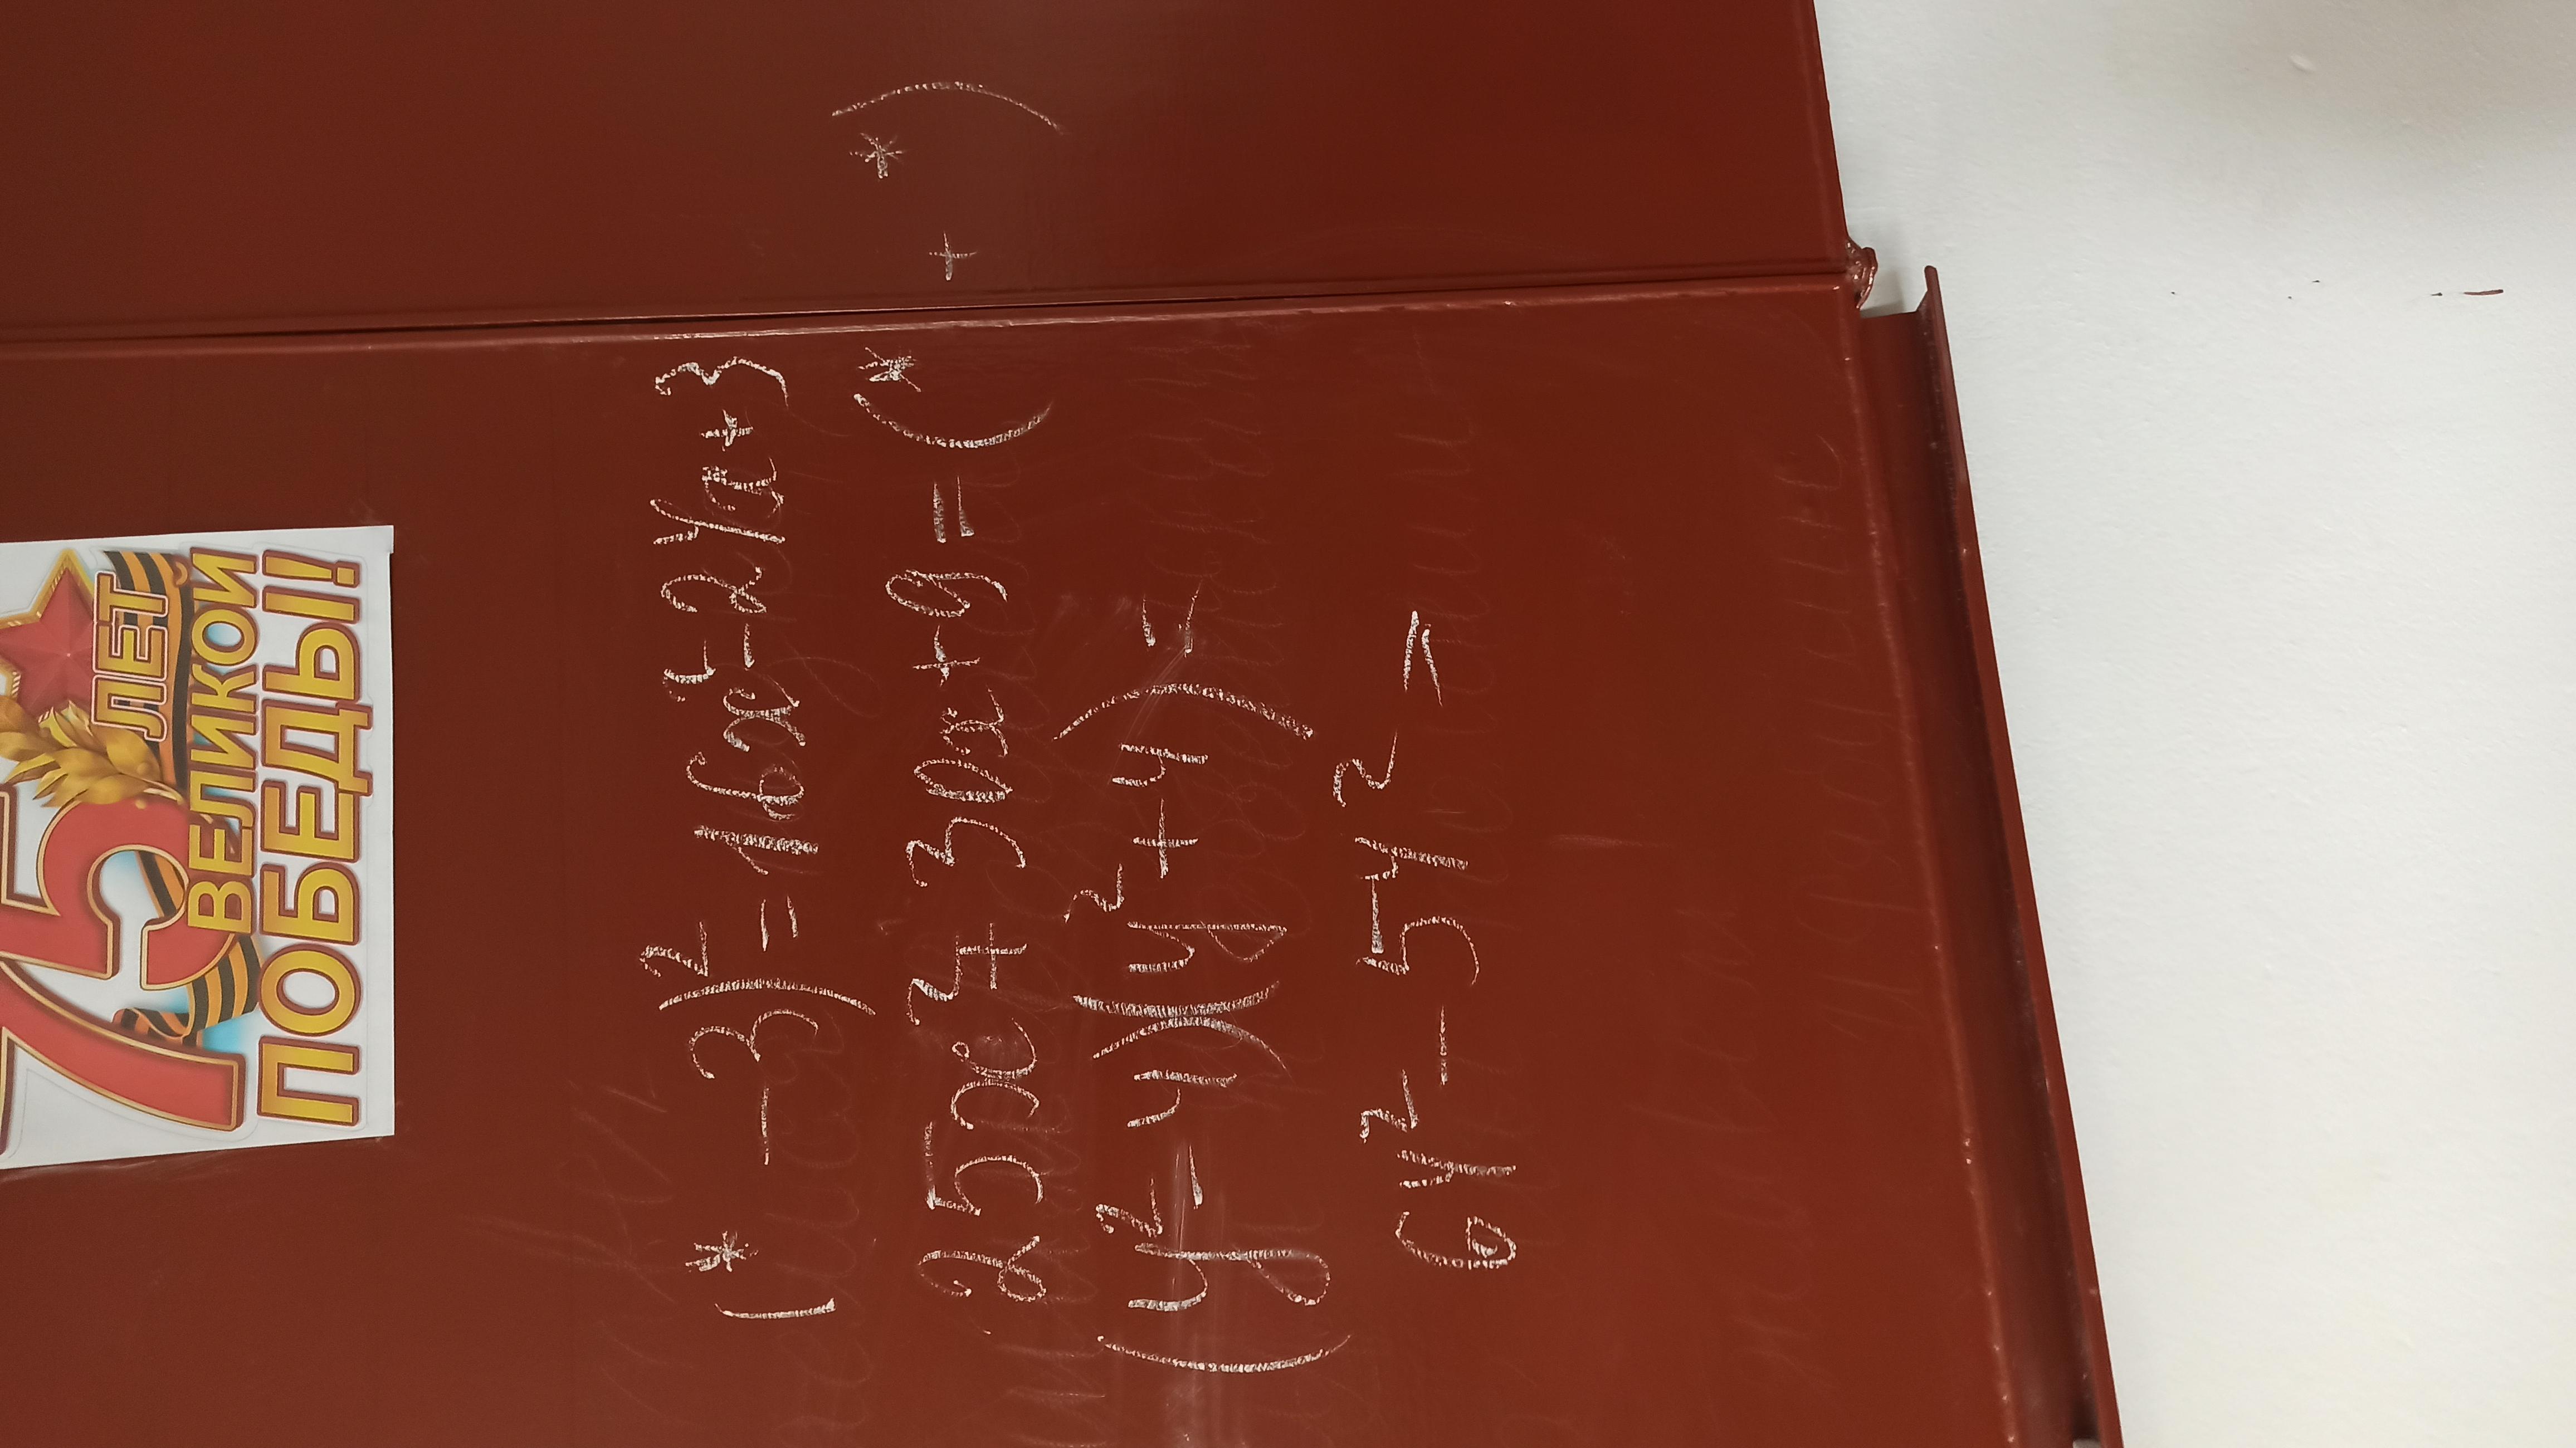 75 ЛЕТ
ВЕЛИКОЙ
ПОБЕДЫ!
(* - 3)² = 16x² - 24a + 3
25x² + 30x + 9 = (* + *)
(y² - 4)(y² + 4) =
64² - 54² =